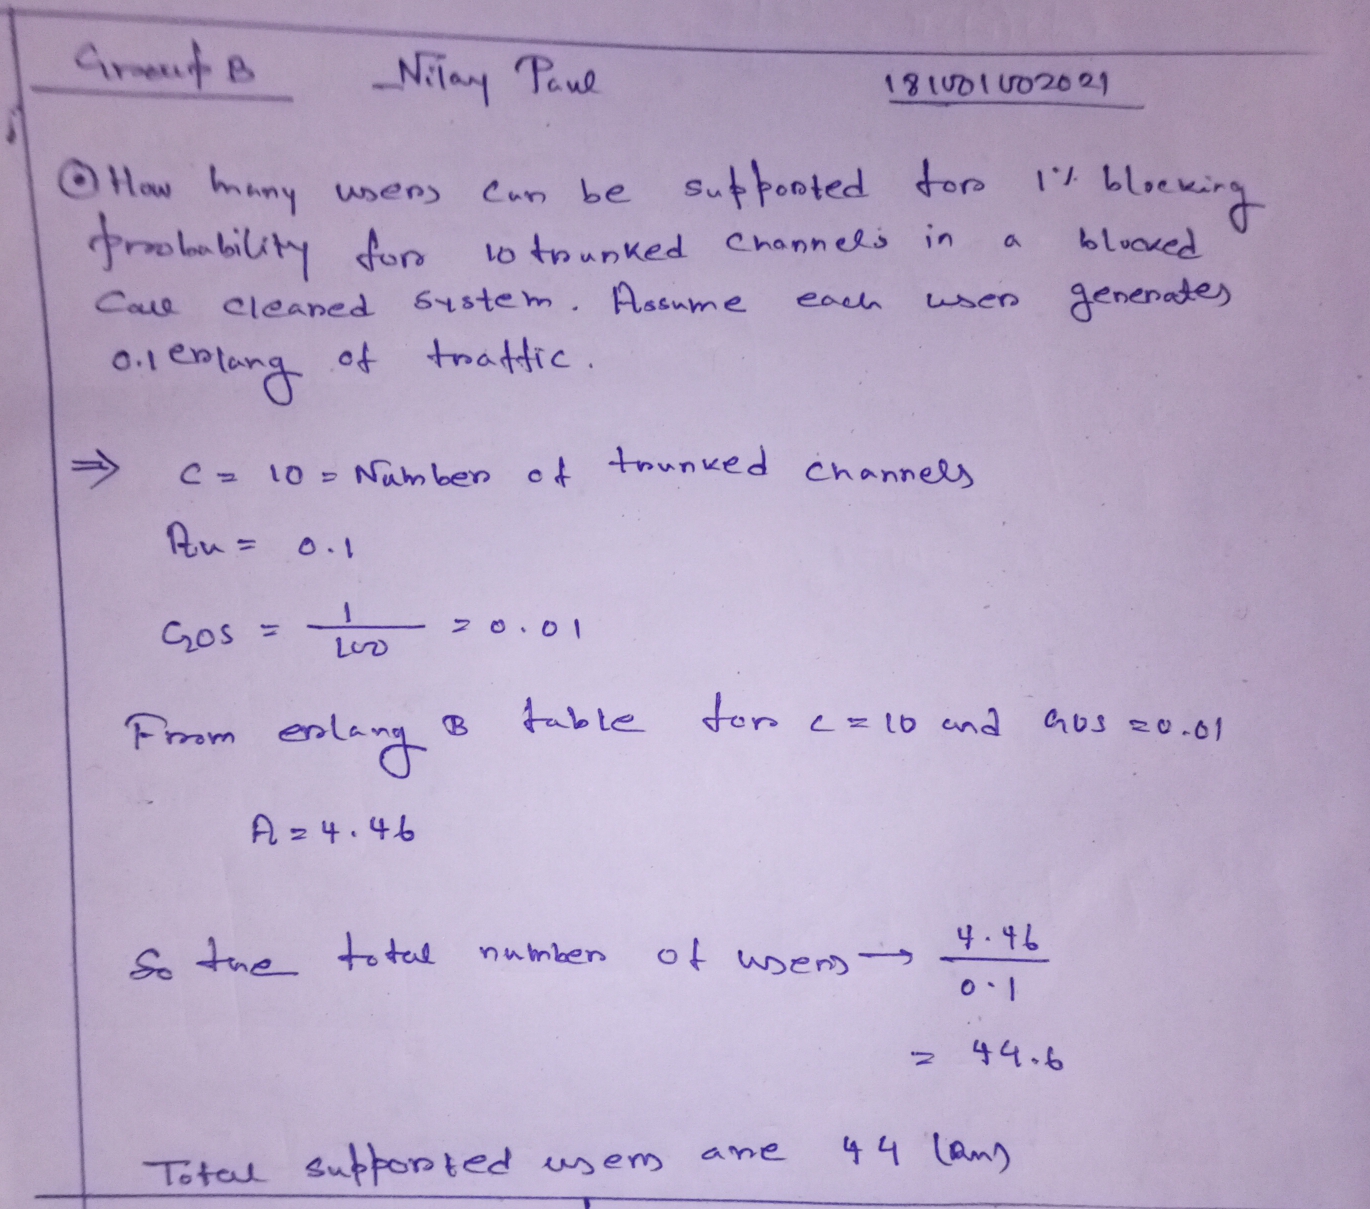 Group B Nilay Paul 181001002021
How many users can be supported for 1% blocking
probability for 10 trunked channels in a blocked
Call cleared system. Assume each user generates
0.1 erlang of traffic.
⇒ C = 10 = Number of trunked channels
Au = 0.1
GOS = 1/100 = 0.01
From erlang B table for c = 10 and GOS = 0.01
A = 4.46
So the total number of users → 4.46/0.1
= 44.6
Total supported users are 44 (Ans)